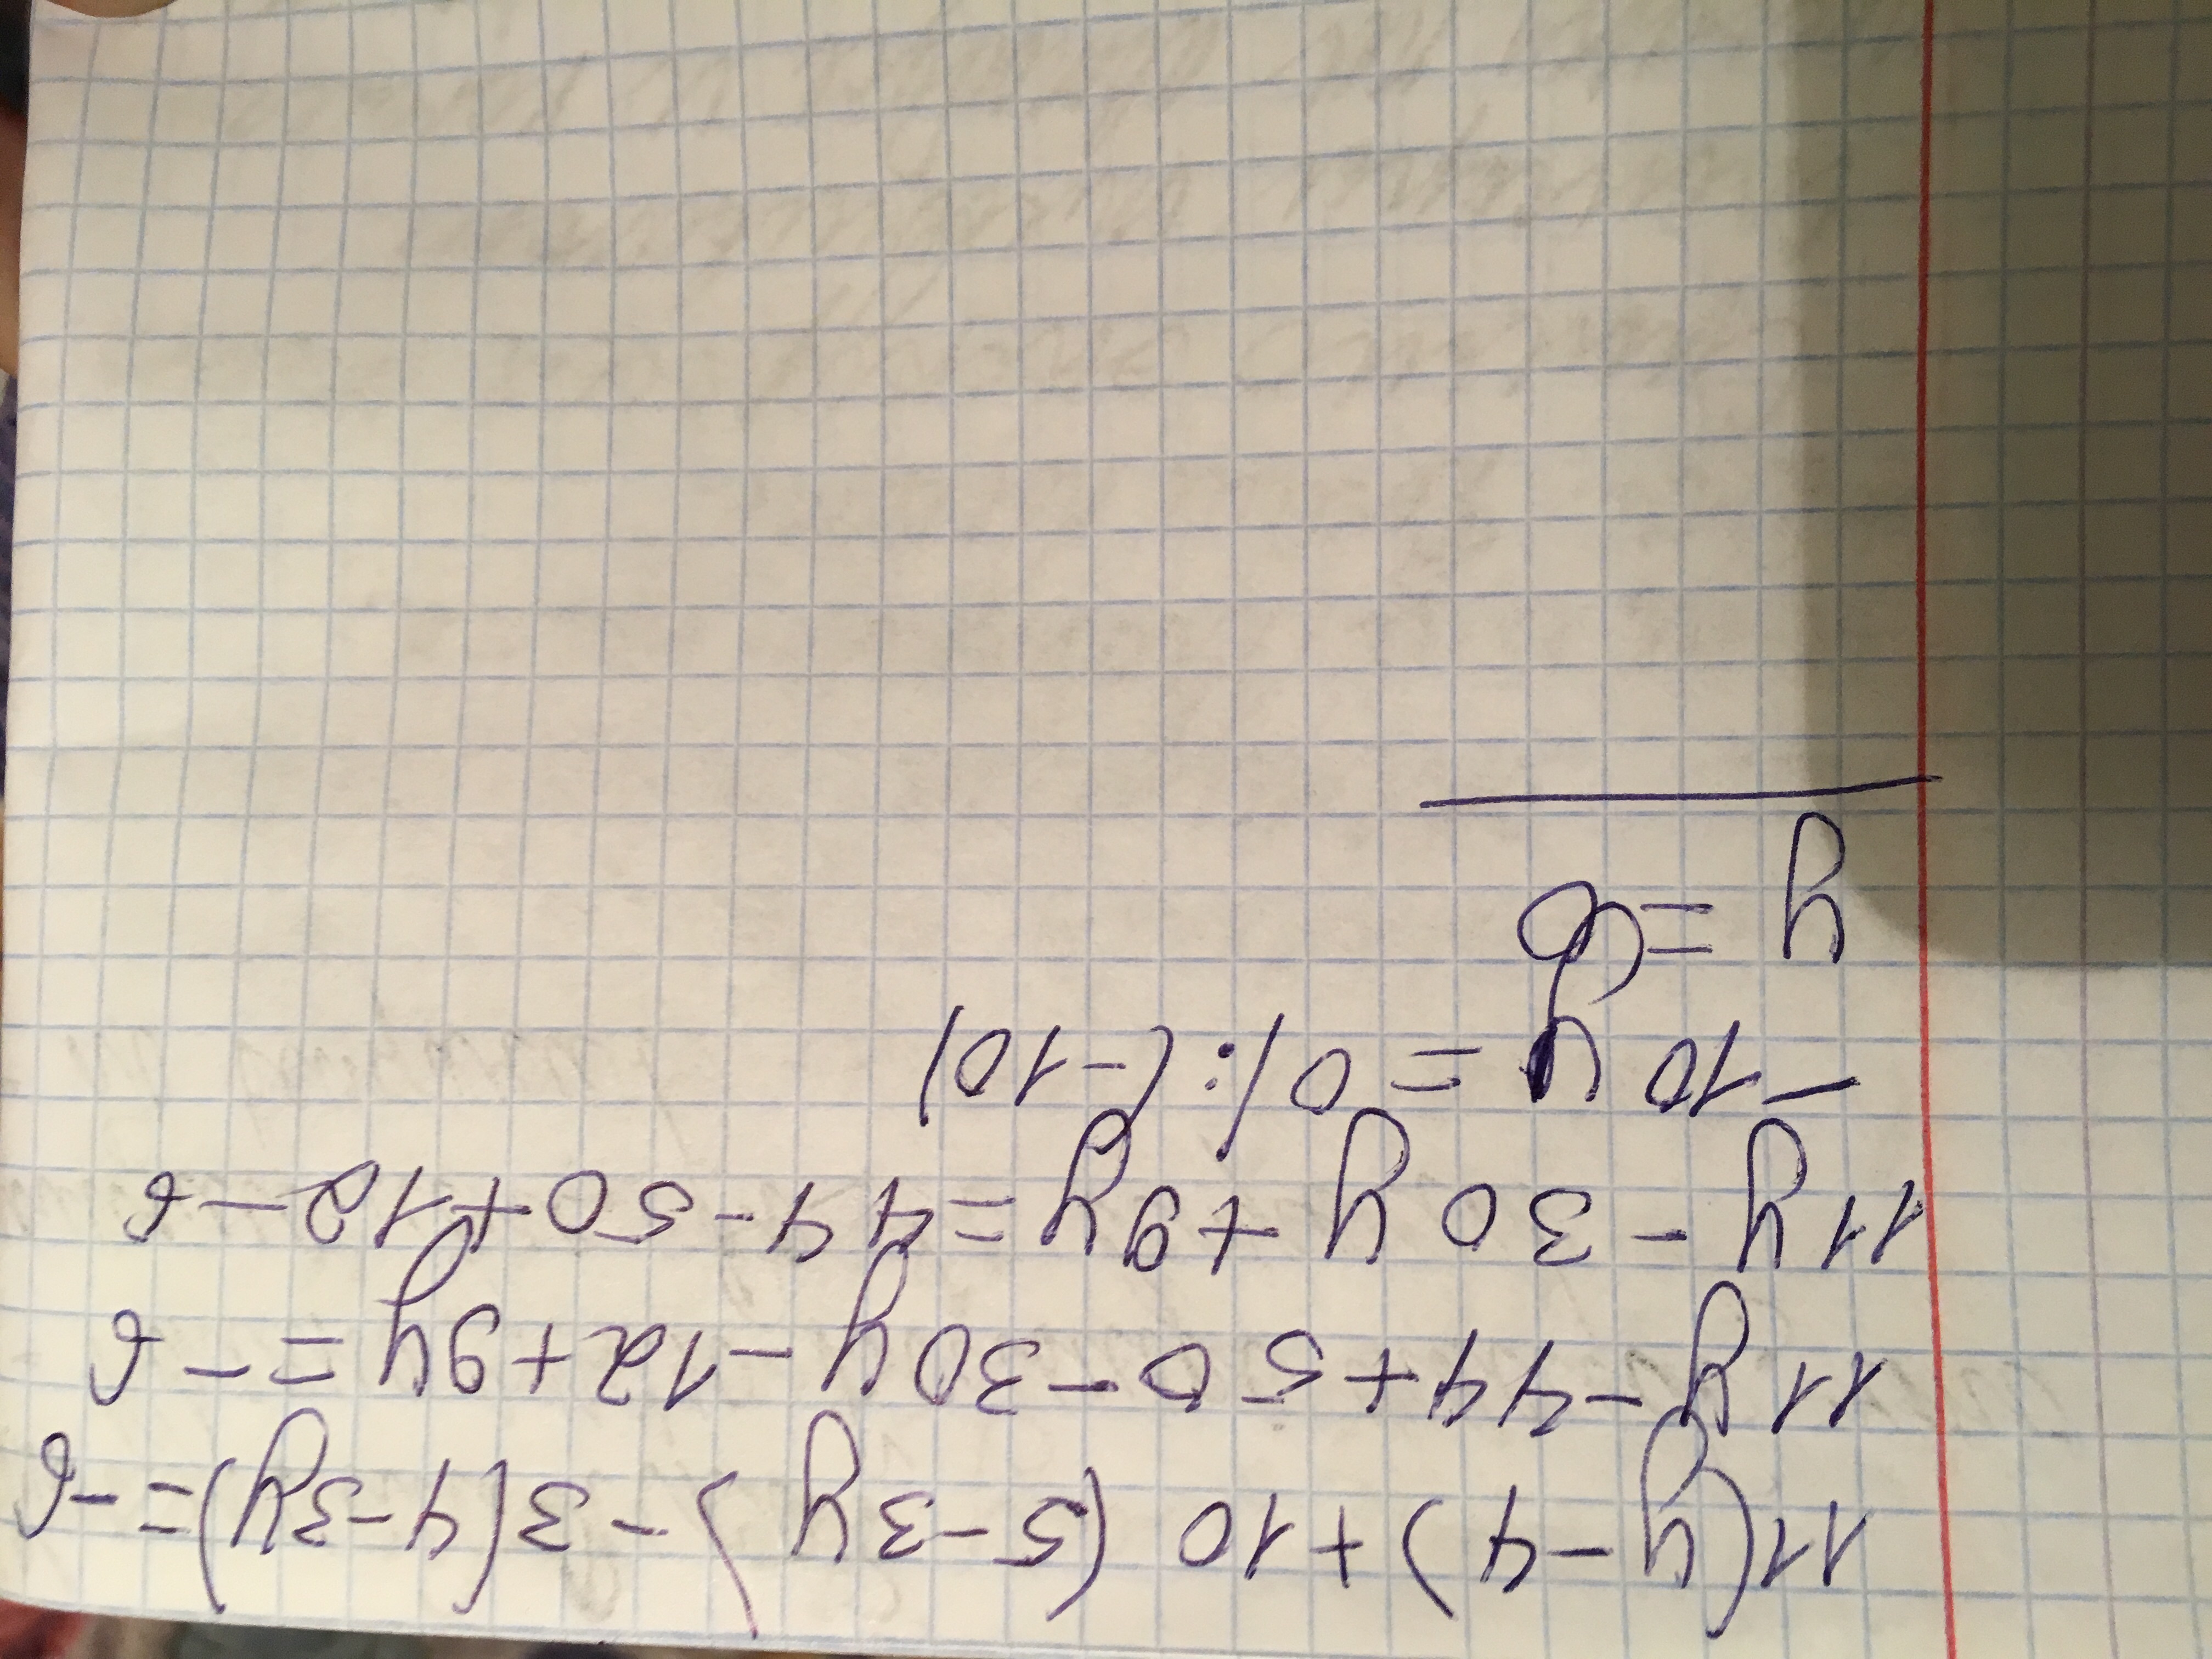 11(y-4)+10(5-3y)-3(4-3y)=-6
11y-44+50-30y-12+9y=-6
11y-30y+9y=44-50+12-6
-10y=0|:(-10)
y=0